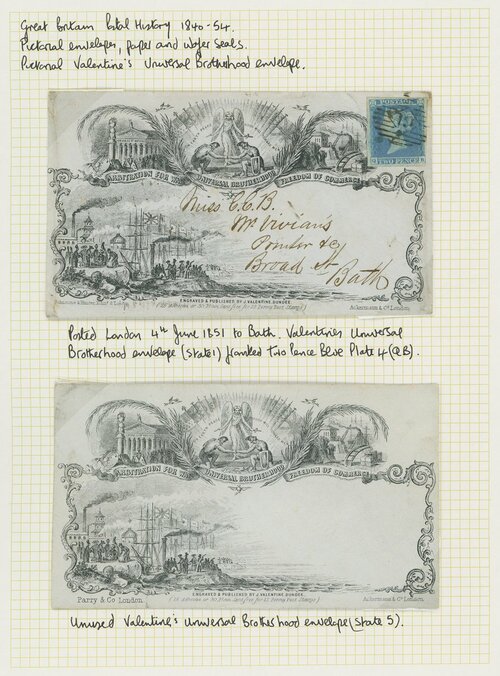 Great Britain Postal History 1840-54.
Pictorial envelopes, paper and wafer seals.
Pictorial Valentine's Universal Brotherhood envelope.
POSTAGE
TWO PENCE
ARBITRATION FOR WAR UNIVERSAL BROTHERHOOD FREEDOM OF COMMERCE
Miss E.C.B.
Mr Vivian's
Printer &c
Broad St
Bath
ENGRAVED & PUBLISHED BY J. VALENTINE, DUNDEE.
Ackermann & Co. London
Posted London 4th June 1851 to Bath. Valentines Universal
Brotherhood envelope (State 1) franked two Pence Blue Plate 4 (QB).
ARBITRATION FOR WAR UNIVERSAL BROTHERHOOD FREEDOM OF COMMERCE
ENGRAVED & PUBLISHED BY J. VALENTINE, DUNDEE.
Parry & Co. London.
Ackermann & Co. London
Unused Valentine's Universal Brotherhood envelope (State 5).